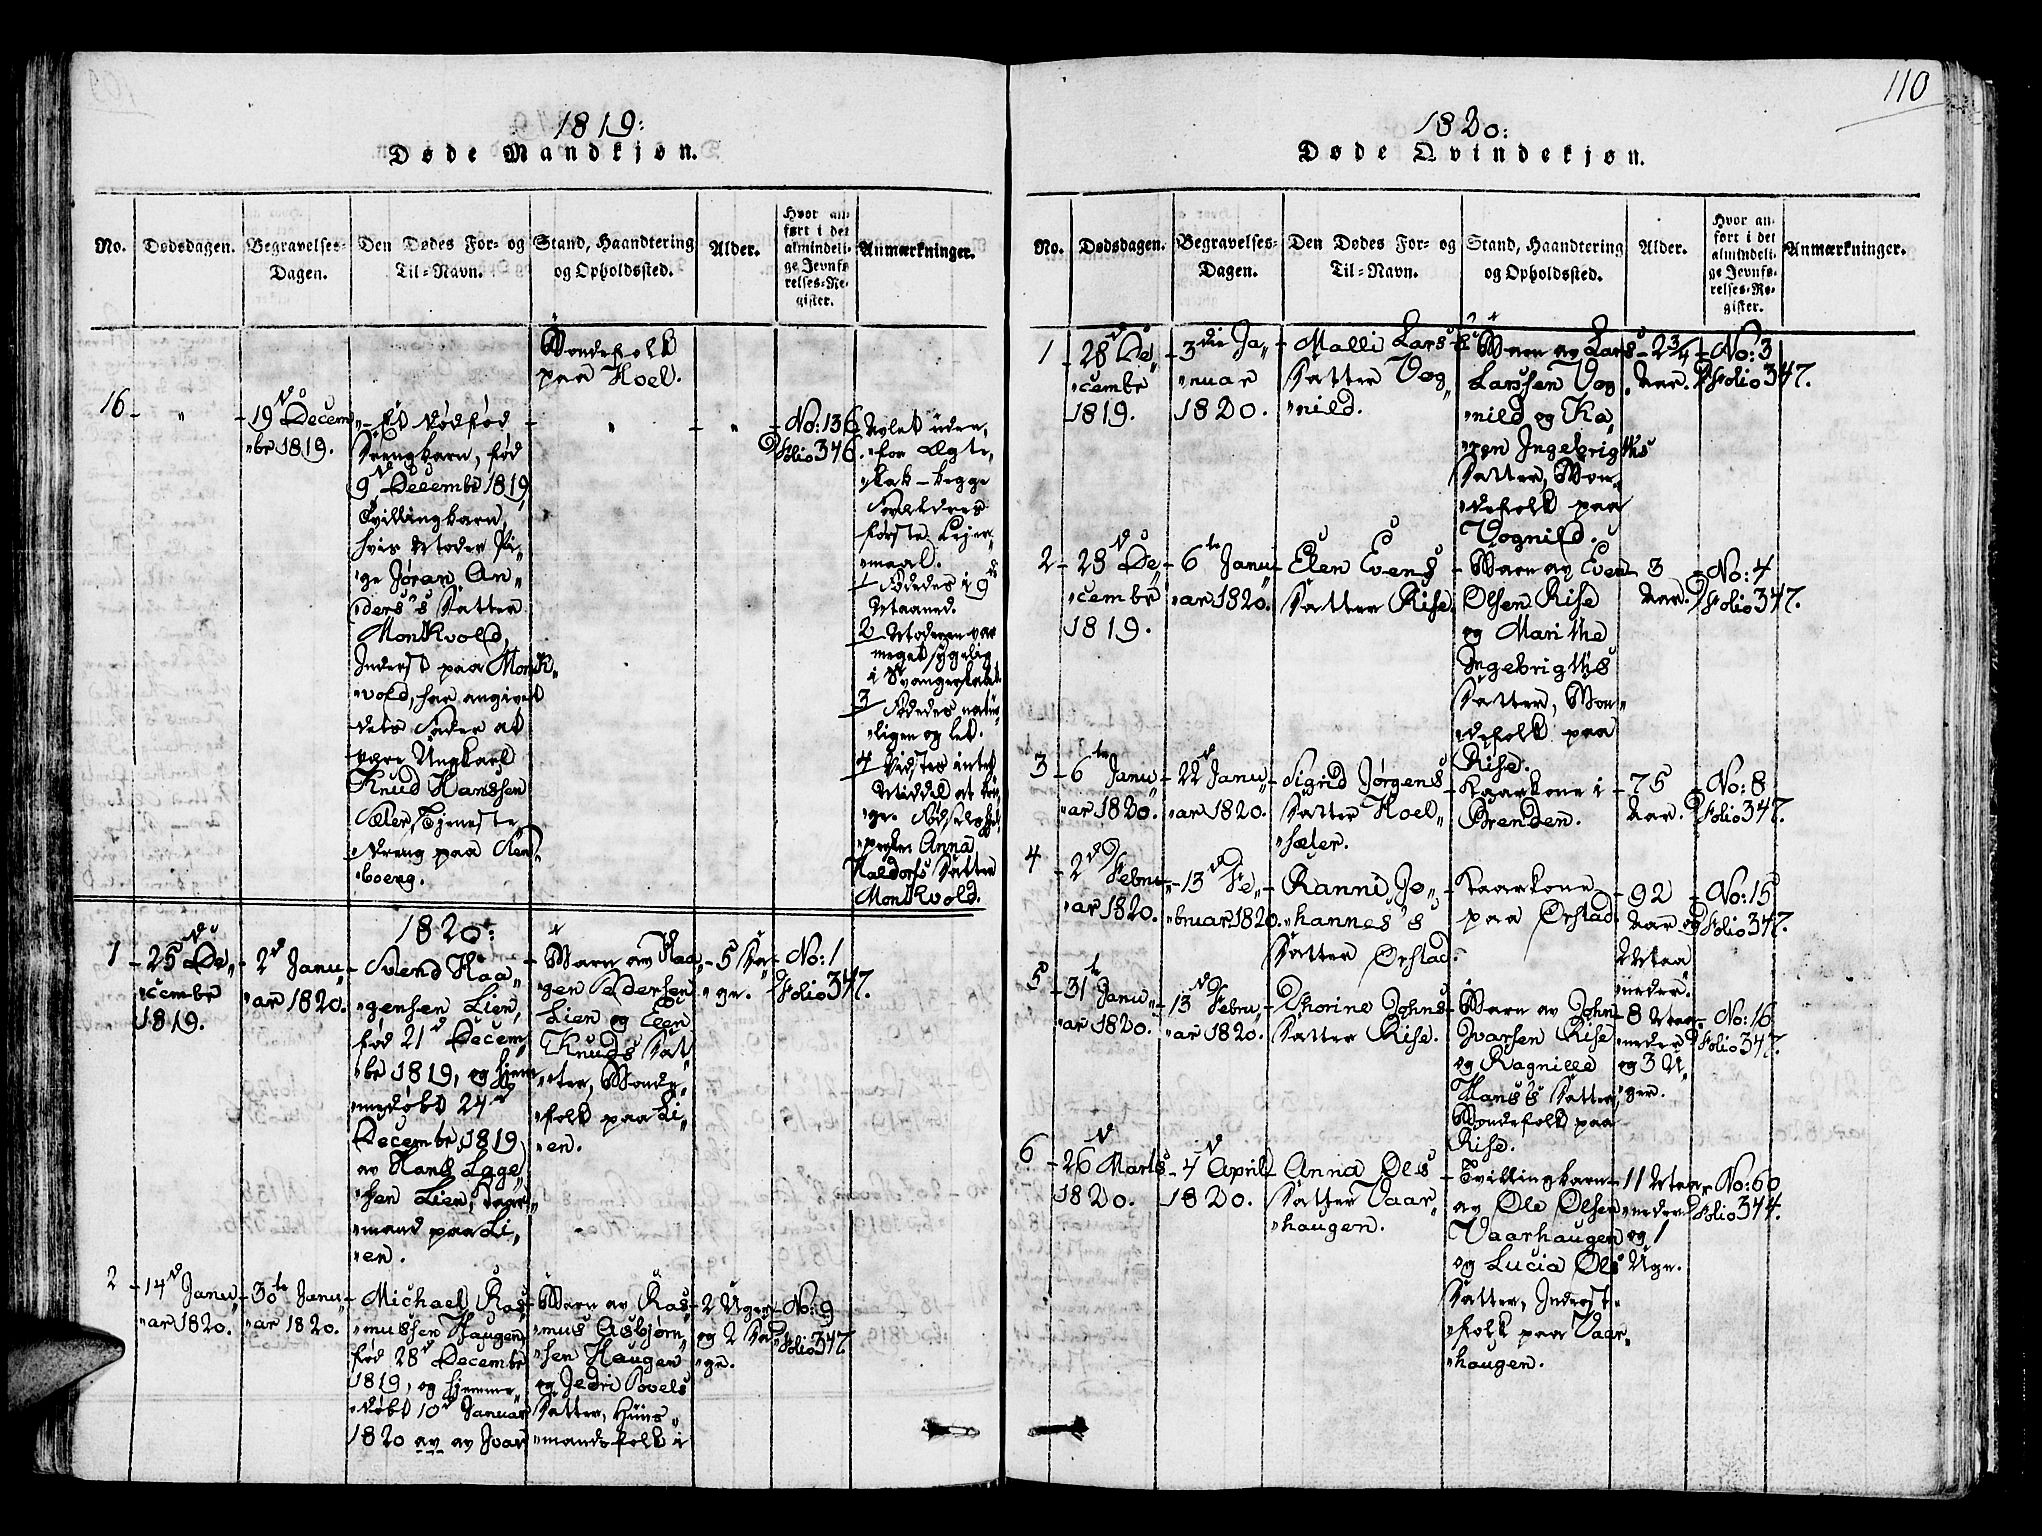 110
1819:
Døde Mandkjøn.
No.
Dødsdagen.
Begravelses-
Dagen.
Den Dødes For- og
Til-Navn.
Stand, Haandtering
og Opholdssted.
Alder.
Hvor an-
ført i det
almindeli-
ge Jevnfø-
relses-Re-
gister.
Anmærkninger.
Bondefolk
paa Hoel.
16
19d Decem„
„br 1819.
Et dødfød
Drengbarn, fød
9d Decembr 1819
Tvillingbarn,
hvis Moder Pi„
„ge Jøran An„
„ders's Datter
Monkvold,
Inderst paa Monk„
„vold, har angivet
dets Fader at
være Ungkarl
Knud Hanssen
Sæter, Tjeneste„
„dreng paa
„boerg.
No: 136
Folio 346.
Avlet uden„
„for Ægte„
„skab - begge
Forældres
første Lejer„
„maal.
1 Fødedes i 9de
Maaned.
2 Moderen var
meget sygelig
i Svangerskabet
3 Fødedes natur„
„ligen og let.
4 Vidstes intet
Middel at bru„
„ge. Fødselshjel„
„perske Anna
Haldors Datter
Monkvold.
1820:
1
25d De„
„cembr
1819.
2d Janu„
„ar 1820.
Svend Haa„
„gensen Lien,
fød 21d Decem„
„br 1819, og hjem„
„medøbt 24d
Decembr 1819
av Hans Lage„
„sen Lien, Kaar„
„mand paa Li„
„en.
Barn av Haa„
gen Pedersen
Lien og Elen
Knuds Dat„
„ter, Bonde„
„folk paa Li„
„en.
5 Da„
„ge.
No: 1
Folio 347.
2
14d Janu„
„ar 1820.
30te Janu„
„ar 1820.
Michael Ras„
„mussen Haugen,
fød 28d Decembr
1819, og hjemme„
„døbt 10d Januar
1820 av av Ivar
Barn av Ras„
„mus Asbjørn„
„sen Haugen
og Jedri Povels
Datter, Huus„
„mandsfolk i
2 Uger
og 2 Da„
„ge.
No: 9
Folio 347
1820:
Døde Qvindekjøn.
No.
Dødsdagen.
Begravelses-
Dagen.
Den Dødes For- og
Til-Navn.
Stand, Haandtering
og Opholdssted.
Alder.
Hvor an-
ført i det
almindeli-
ge Jevnfø-
relses-Re-
gister.
Anmærkninger.
1
28d De„
„cembr
1819.
3die Ja„
„nuar
1820.
Malli Lars's
Datter Vog„
„nild.
Barn av Lars
Larssen Vog„
„nild og Ka„
„ren Ingebrigths
Datter, Bon„
„defolk paa
Vognild.
2 3/4
Aar.
No: 3
Folio 347.
2
28d De„
„cembr
1819.
6te Janu„
„ar 1820.
Elen Evens
Datter Rise.
Barn av Even
Olsen Rise
og Marithe
Ingebrigths
Datter, Bon„
„defolk paa
Rise.
3
Aar.
No: 4
Folio 347.
3
6te Janu„
„ar 1820.
22d Janu„
„ar 1820.
Sigrid Jørgens
Datter Hoel„
„sæter.
Kaarkone i
Brenden.
75
Aar.
No: 8
Folio 347.
4
2d Febru„
„ar 1820.
13d Fe„
„bruar 1820.
Ranni Jo„
„hannes's
Datter Ørstad.
Kaarkone
paa Ørstad.
92
Aar og
2 Maa„
„neder.
No: 15
Folio 347.
5
31te Janu„
„ar 1820.
13d Febru„
„ar 1820.
Thorine Johns
Datter Rise.
Barn av John
Ivarsen Rise
og Ragnille
Hans's Datter,
Bondefolk paa
Rise.
8 Maa„
„neder
og 3 U„
„ger.
No: 16
Folio 347.
6
26d Marts
1820.
4d April
1820.
Anna Ols
Datter Vaar„
„haugen.
Tvillingbarn
av Ole Olsen
Vaarhaugen
og Lucia Ols
Datter, Inderst„
„folk paa Vaar„
„haugen.
11 Maa„
„neder
og 1
Uge.
No: 60
Folio 344.